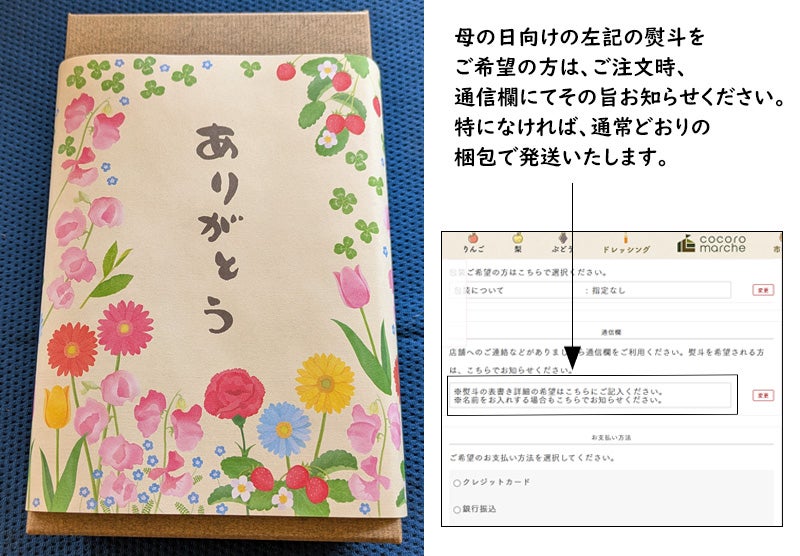 ありがとう
母の日向けの左記の熨斗を
ご希望の方は、ご注文時、
通信欄にてその旨お知らせください。
特になければ、通常どおりの
梱包で発送いたします。
りんご
梨
ぶどう
ドレッシング
cocoro
marche
市
ご希望の方はこちらで選択ください。
について
：指定なし
変更
通信欄
店舗へのご連絡などがありましたら通信欄をご利用ください。熨斗を希望される方
は、こちらでお知らせください。
※熨斗の表書き詳細の希望はこちらにご記入ください。
※名前をお入れする場合もこちらでお知らせください。
変更
お支払い方法
ご希望のお支払い方法を選択してください。
クレジットカード
銀行振込